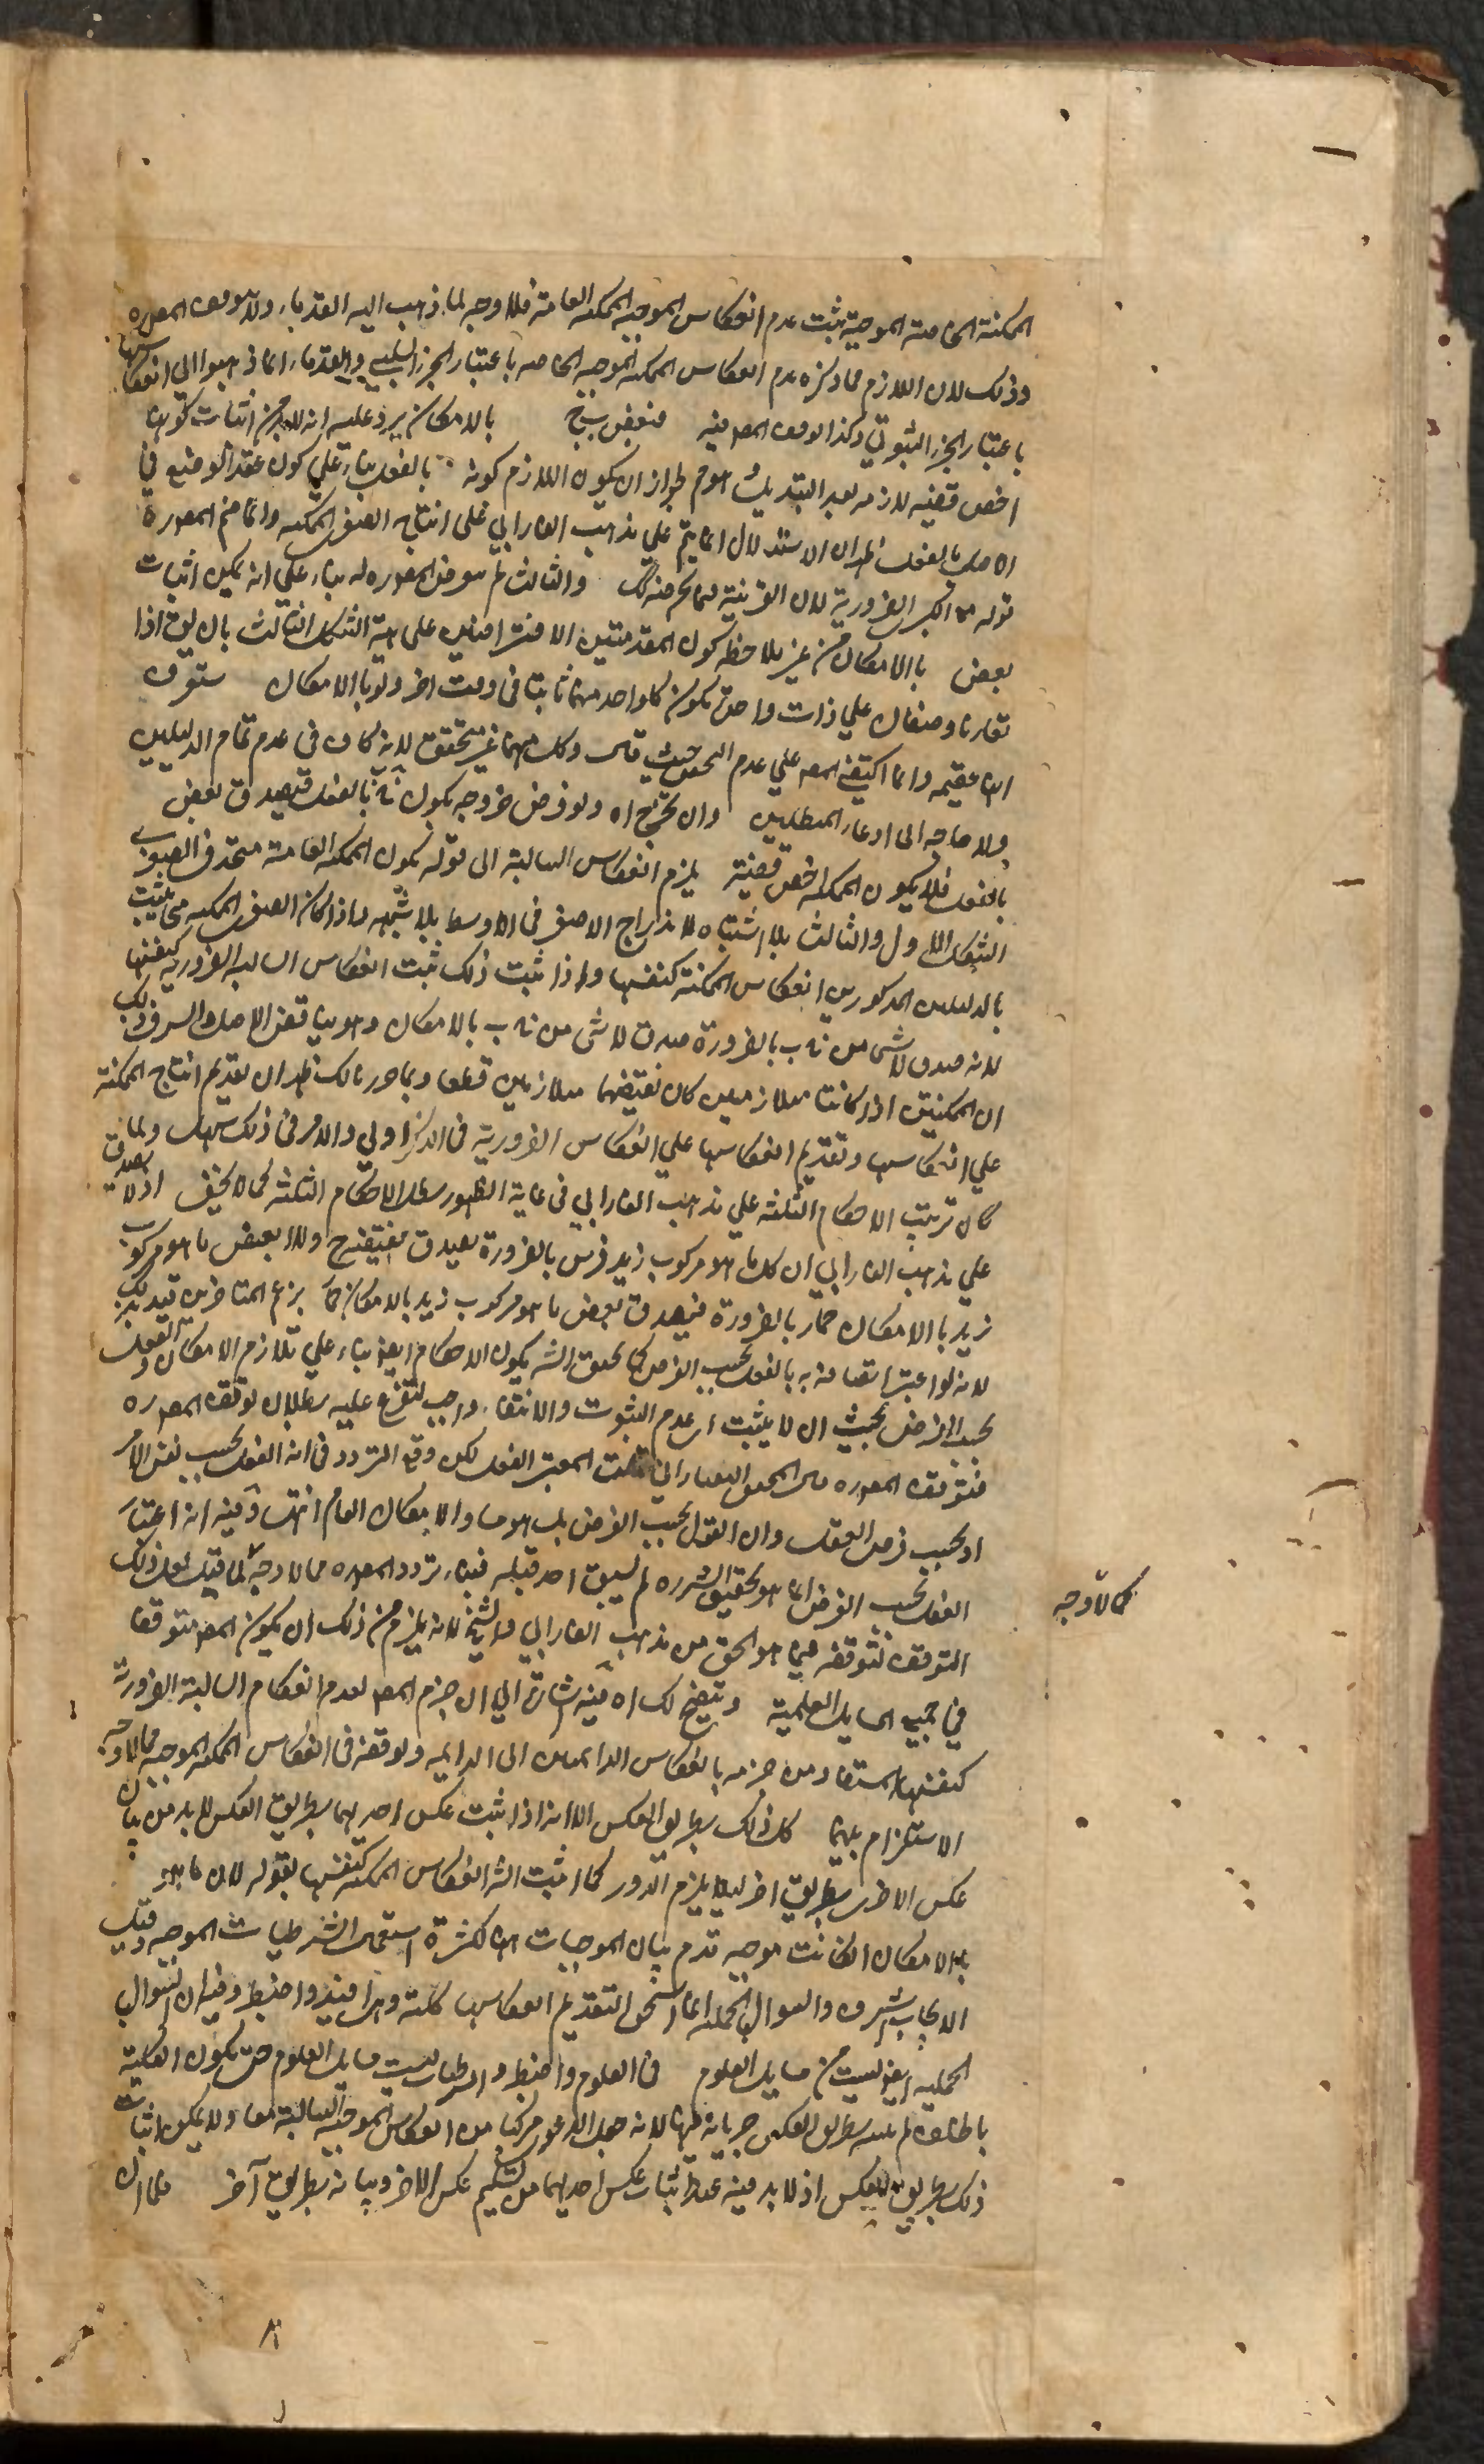 الممكنة الخاصة الموجبة ثبت عدم انعكاس الموجبة الممكنة العامة فلا وجه لما ذهب اليه القدماء ولا لتوقف المص ره
وذلك لان اللازم مما ذكره عدم انعكاس الممكنة الموجبة الخاصة باعتبار الجزء السلبي والقدماء انما ذهبوا الى انعكاسها
باعتبار الجزء الثبوتي وكذا توقف المص فيه فبعض ب ج بالامكان يرد عليه انه لا بد من اثبات كونها
اخص قضية لازمة بعد التبديل هو م لجواز ان يكون اللازم كونه بالفعل بناء على كون عقد الوضع في
الاصل بالفعل ظهر ان الاستدلال انما يتم على مذهب الفارابي على انتاج الصغرى الممكنة وانما ضم المص ره
قوله مع الكبرى الضرورية لان القرينة والثالث لم يتعرض المص ره له بناء على انه يمكن اثبات
بعض بالامكان من غير ملاحظة كون المقدمتين الاقترانيتين على هيئة الشكل الثالث بان يق اذا
تقارنا وصفان على ذات واحدة يكون كل واحد منهما ثابتا في وقت اخر ولو بالامكان ستعرف
انها عقيمة وانما اكتفى المص على عدم التحقق حيث قال وكل منهما غير متحقق لانه كاف في عدم تمام الدليلين
ولا حاجة الى ادعاء البطلان وان يخرج اه ولو فرض خروجه يكون بالفعل فيصدق بعض
بالفعل فلا يكون الممكنة اخص قضية يلزم انعكاس السالبة الى قوله يكون الممكنة العامة منتجة في الصغرى
الشكل الاول والثالث بلا اشتباه لاندراج الاصغر في الاوسط بلا شبهة واذا كان الصغرى الممكنة منتجة ثبت
بالدليلين المذكورين انعكاس الممكنة كنفسها واذا ثبت ذلك ثبت انعكاس السالبة الضرورية كنفسها
لانه صدق لا شئ من ب بالضرورة صدق لا شئ من ب بالامكان وهو يناقض الاصل والسر في ذلك
ان الممكنتين اذا كانتا متلازمتين كان نقيضهما متلازمين قطعا وبما حررنا لك ظهر ان تقديم انتاج الممكنة
على انعكاسها وتقديم انعكاسها على انعكاس الضرورية في الذكر اولى والامر في ذلك سهل ولما
كان ترتب الاحكام الثلثة على مذهب الفارابي في غاية الظهور بطل الاحكام الثلثة كما لا يخفى اذ لا يصدق
على مذهب الفارابي ان كل ما هو مركوب زيد فرس بالضرورة بصدق نقيضه ولا بعض ما هو مركوب
زيد بالامكان حمار بالضرورة فيصدق بعض ما هو مركوب زيد بالامكان بزعم المتاخرين قيد بذلك
لانه لو اعتبر اتصافه به بالفعل بحسب الفرض كما حققه الش يكون الاحكام ايضا بناء على تلازم الامكان والفعل
بحسب الفرض بحيث ان لا يثبت اى عدم الثبوت والانتفاء واجب لتفرع عليه بطلان توقف المص ره
فتوقف المص ره قال المحقق التفتازاني قلت المعتبر الفعل لكن وقع التردد في انه الفعل بحسب نفس الامر
او بحسب فرض العقل وان الفعل بحسب الفرض بل هو مساو للامكان العام انتهى وفيه انه اعتبار
الفعل بحسب الفرض انما هو تحقيق الش ره لم يسبق احد قبله فبناء تردد المص ره مما لا وجه كما قيل لعل ذلك
التوقف لتوقفه فيما هو الحق من مذهب الفارابي والشيخ لانه يلزم من ذلك ان يكون المص متوقفا
في جميع المسايل العلمية ويتضح لك اه فيه اشارة الى ان جزم المص لعدم انعكاس السالبة الضرورية
كنفسها المستفاد من جزمه بانعكاس الدائمتين الى الدايمة وتوقفه في انعكاس الممكنة الموجبة مما لا وجه
الاستلزام بينهما كل ذلك بطريق العكس الا انه اذا ثبت عكس احديهما بطريق العكس لابد من بيان
عكس الاخرى بطريق اخر ليلا يلزم الدور كما اثبت الش انعكاس الممكنة كنفسها بقوله لان ما هو
بالامكان ان كانت موجبة قدم بيان الموجبات اه لكثرة استعمال الشرطيات الموجبة وقيل
الايجاب اشرف والسوالب الحملية انما استحق التقديم انعكاسها كلية وهي افيد واضبط وفيه ان السوالب
الحملية ايضا ليست من مسايل العلوم في العلوم واضبط والشرطيات ليست مسايل العلوم حتى يكون الكلية
باطلاقه لم يبينه بطريق العكس جريانه فيها لانه جعل الدعوى مركبا من انعكاس الموجبة السالبة معا ولا يمكن اثبات
ذلك بطريق العكس اذ لا بد فيه عند اثبات عكس احديهما من تسليم عكس الاخر وبيانه بطريق آخر فلما ان
كما لا وجه